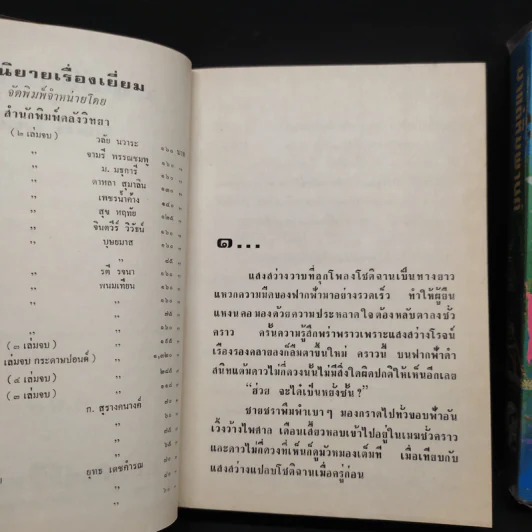 นิยายเรื่องเยี่ยม
จัดพิมพ์จำหน่ายโดย
สำนักพิมพ์คลังวิทยา
(๒ เล่มจบ) วลัย นวาระ ๑๖๐ บาท
" จามรี พรรณชมพู ๑๖๐ "
" ม. มธุการี "
" ดาหลา สุมาลิน "
" เพชรน้ำค้าง "
" สุข หฤทัย "
" จินตวีร์ วิวัธน์ "
" บุษยมาส "
"
" รตี รจนา "
" พนมเทียน "
"
"
(๓ เล่มจบ) "
เล่มจบ กระดาษปอนด์) "
(๔ เล่มจบ) "
(๓ เล่มจบ) "
ก. สุรางคนางค์
"
"
"
ยุทธ เดชคำรณ
"
"
๑...
แสงสว่างวาบที่ลุกโพลงโชติฉานเป็นทางยาว
แหวกความมืดของฟากฟ้ามาอย่างรวดเร็ว ทำให้ผู้ยืน
แหงนคอมองด้วยความประหลาดใจ ต้องหลับตาลงชั่ว
คราว ครั้นความรู้สึกพร่าพราวเพราะแสงสว่างโรจน์
เรืองรองคลายลงก็ลืมตาขึ้นใหม่ คราวนี้ บนฟากฟ้าดำ
สนิทแต้มดาวไม่กี่ดวงนั้นไม่มีสิ่งใดผิดปกติให้เห็นอีกเลย
"ฮ่วย จะได๋เป็นหยั่งซั้น?"
ชายชราพึมพำเบาๆ มองกราดไปทั่วขอบฟ้าอัน
เวิ้งว้างไพศาล เดือนเสี้ยวหลบเข้าไปอยู่ในเมฆชั่วคราว
และดาวไม่กี่ดวงที่เห็นก็ดูมัวหมองเต็มที เมื่อเทียบกับ
แสงสว่างแปลบโชติฉานเมื่อครู่ก่อน